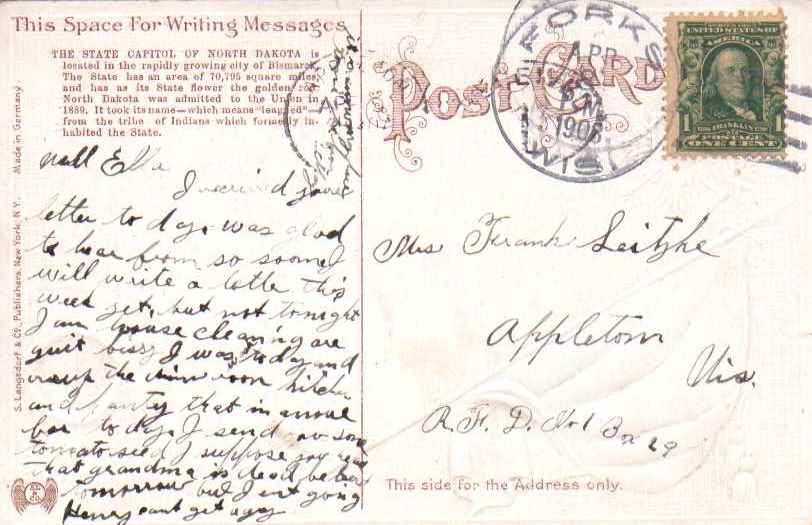 This Space For Writing Messages
THE STATE CAPITOL OF NORTH DAKOTA is
located in the rapidly growing city of Bismarck.
The State has an area of 70,795 square miles,
and has as its State flower the golden rod
North Dakota was admitted to the Union in
1889. It took its name—which means "leagued"—
from the tribe of Indians which formerly in-
habited the State.
Made in Germany.
S. Langsdorf & Co., Publishers, New York, N.Y.
POST CARD
FORKS
APR
PM
1908
WIS
UNITED STATES OF AMERICA
FRANKLIN
POSTAGE
1 ONE CENT 1
Well Ella
I received your
letter to day was glad
to hear from so soon I
will write a letter this
week yet, but not tonight
I am house cleaning are
quit bissy I was to day and
the room kitchen
and pantry that in
for to day I send
tomato seed I suppose you read
that grandma is
tomorrow but I ent going
Henry cant get away
Mrs Frank Leitzke
Appleton
Wis.
R. F. D. No 1 Bx 29
This side for the Address only.